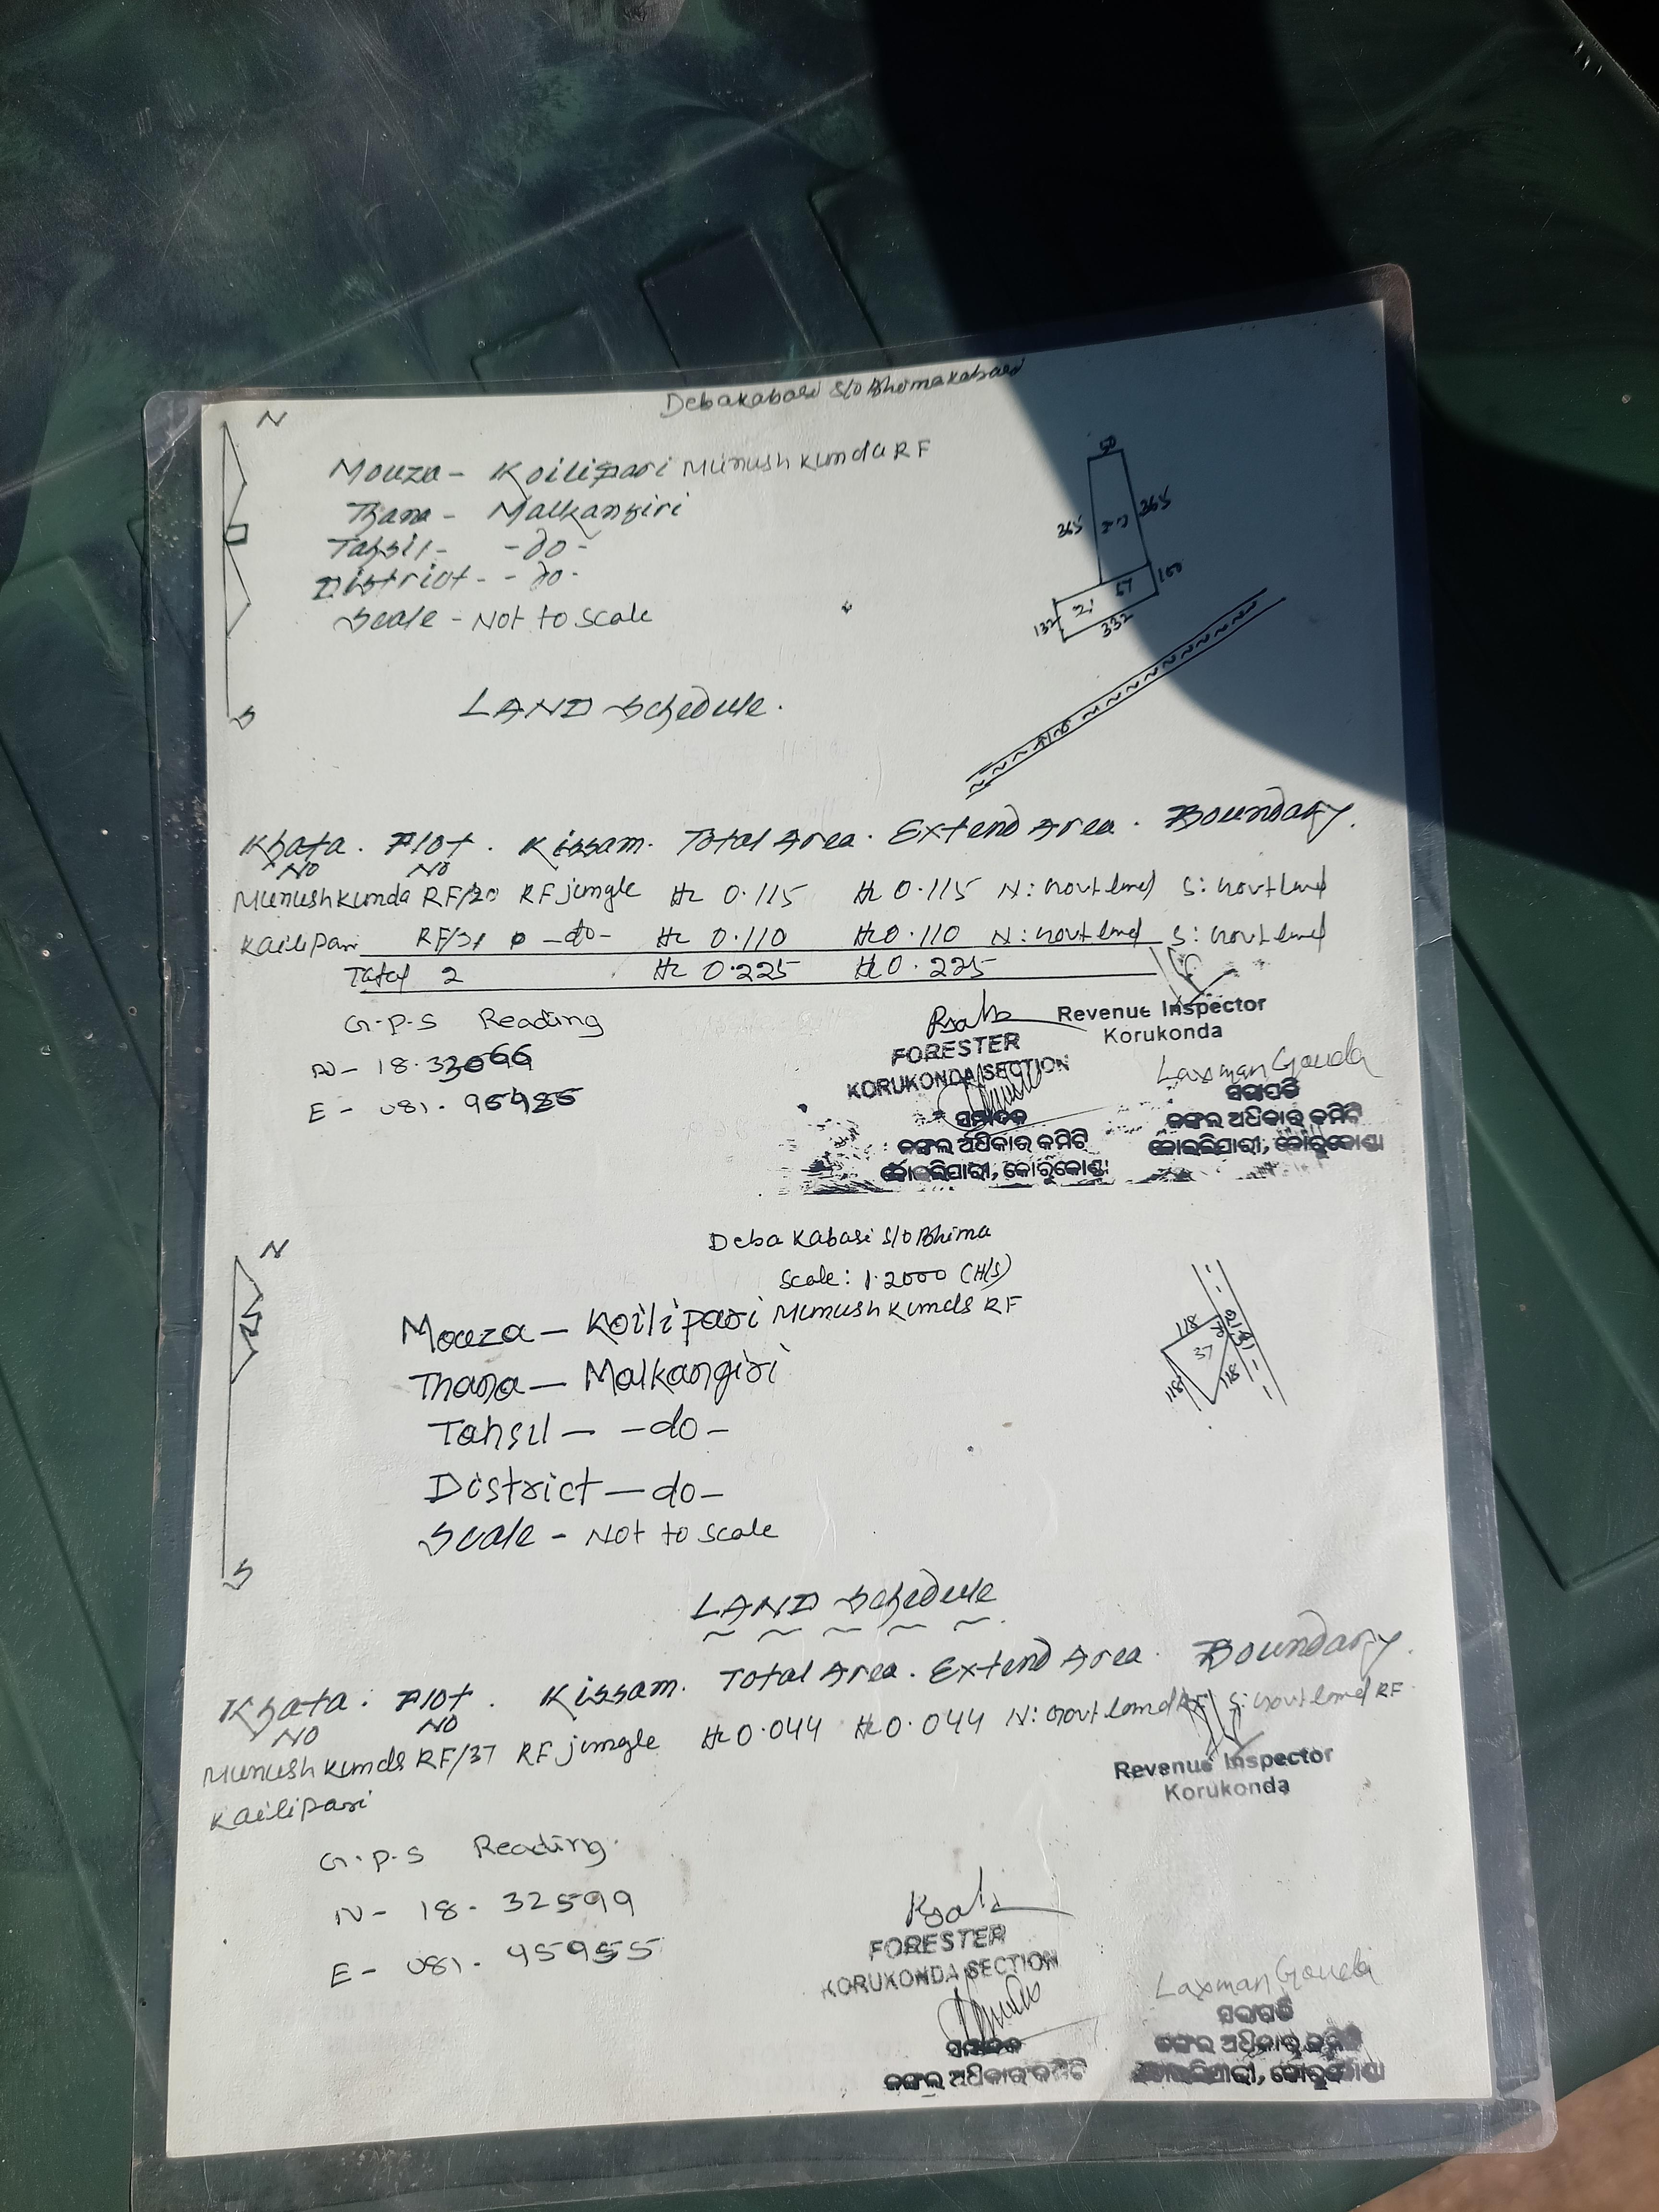 Debakabasi S/o Bhimakabasi
N
Mouza - Koilipari Munushkunda RF
Thana - Malkangiri
Tahsil - -do-
District - -do-
Scale - Not to scale
S
50
365
265
67
100
21
132
332
LAND Schedule.
Khata No. Plot No. Kissam. Total Area. Extend Area. Boundary.
Munushkunda RF/20 RF jungle Hc 0.115 Hc 0.115 N: Govt land S: Govt land
Kailipari RF/21 -do- Hc 0.110 Hc 0.110 N: Govt land S: Govt land
Total 2 Hc 0.225 Hc 0.225
G.P.S Reading
N - 18.33066
E - 081.95485
FORESTER
KORUKONDA SECTION
Revenue Inspector
Korukonda
Laxman Gouda
ସମ୍ପାଦକ
ଜଙ୍ଗଲ ଅଧିକାର କମିଟି
କୋଇଲିପାରୀ, କୋରୁକୋଣ୍ଡା
ସଭାପତି
ଜଙ୍ଗଲ ଅଧିକାର କମିଟି
କୋଇଲିପାରୀ, କୋରୁକୋଣ୍ଡା
Deba Kabasi S/o Bhima
Scale: 1.2000 (H/s)
N
Mouza - Koilipari Munushkunds RF
Thana - Malkangiri
Tahsil - -do-
District - do-
Scale - Not to scale
S
118
37
118
118
LAND Schedule
Khata No. Plot No. Kissam. Total Area. Extend Area. Boundary.
Munushkunds RF/37 RF jungle Hc 0.044 Hc 0.044 N: Govt land RF S: Govt land RF
Kailipari
Revenue Inspector
Korukonda
G.P.S Reading
N - 18.32599
E - 081.95955
FORESTER
KORUKONDA SECTION
Laxman Gouda
ସମ୍ପାଦକ
ଜଙ୍ଗଲ ଅଧିକାର କମିଟି
ସଭାପତି
ଜଙ୍ଗଲ ଅଧିକାର କମିଟି
କୋଇଲିପାରୀ, କୋରୁକୋଣ୍ଡା